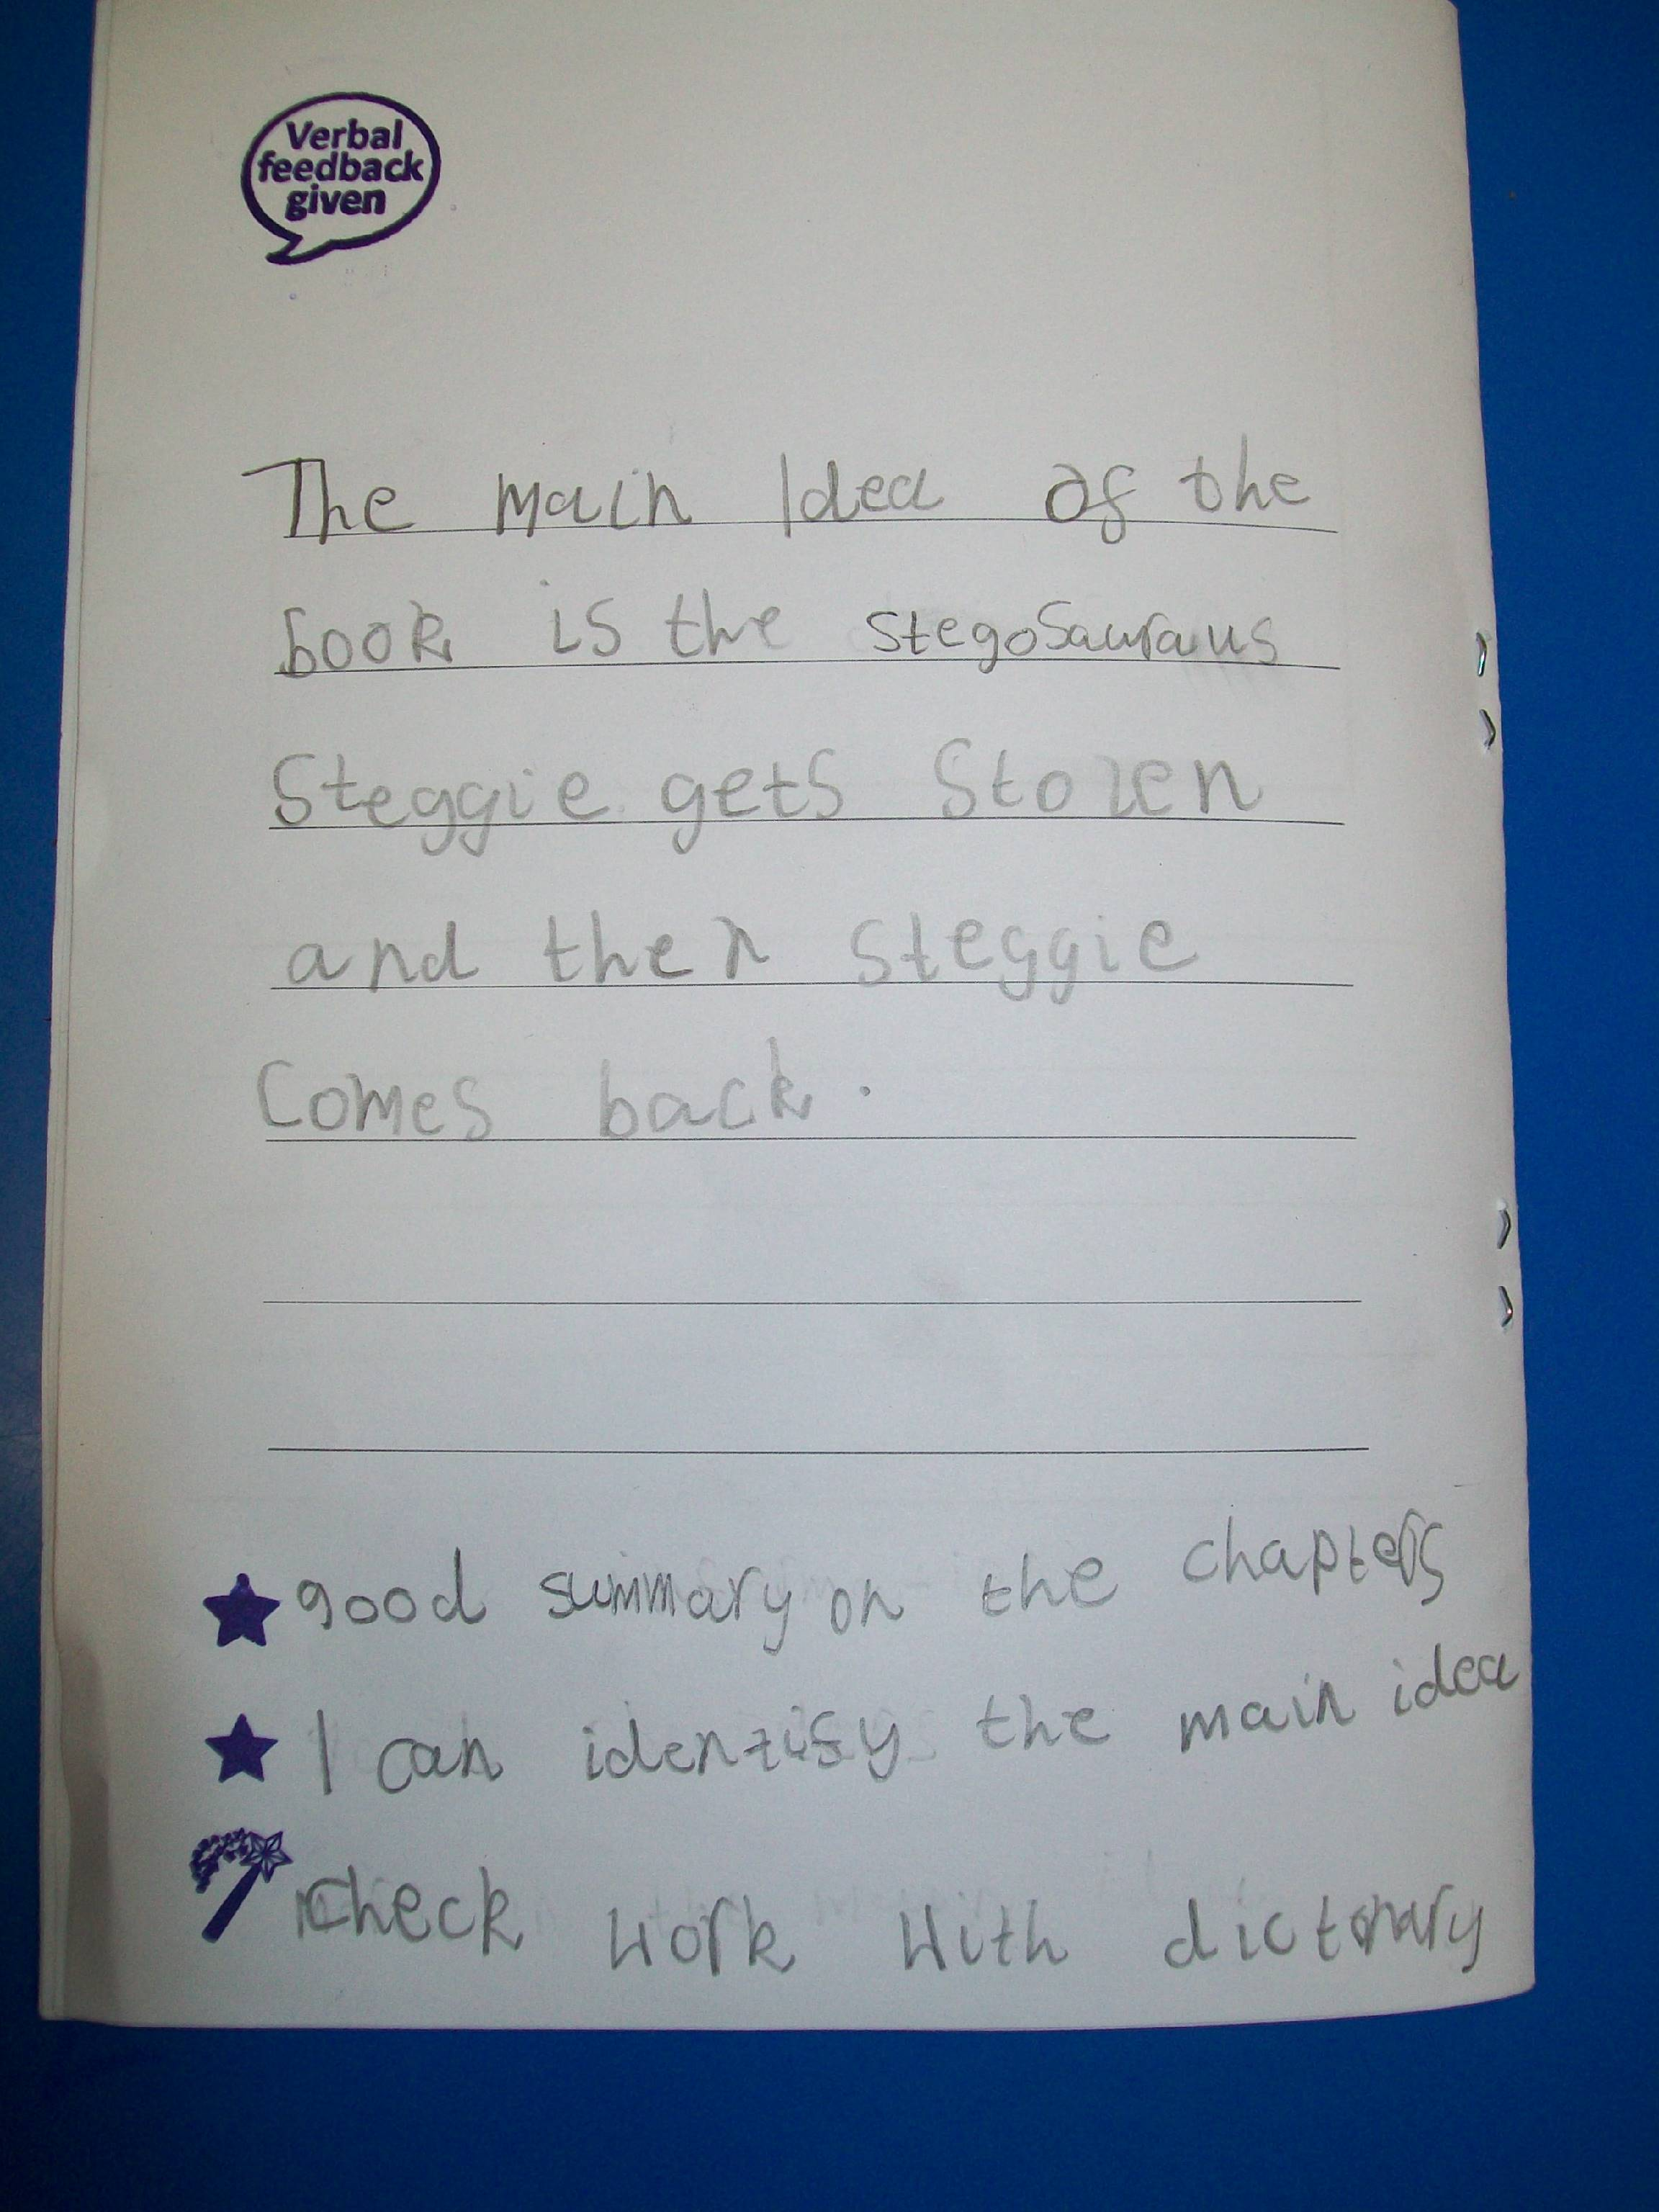 Verbal
feedback
given
The main Idea of the
book is the stegosauraus
Steggie gets Stolen
and then Steggie
Comes back.
good summary on the chapters
I can identify the main idea
check work with dictonary